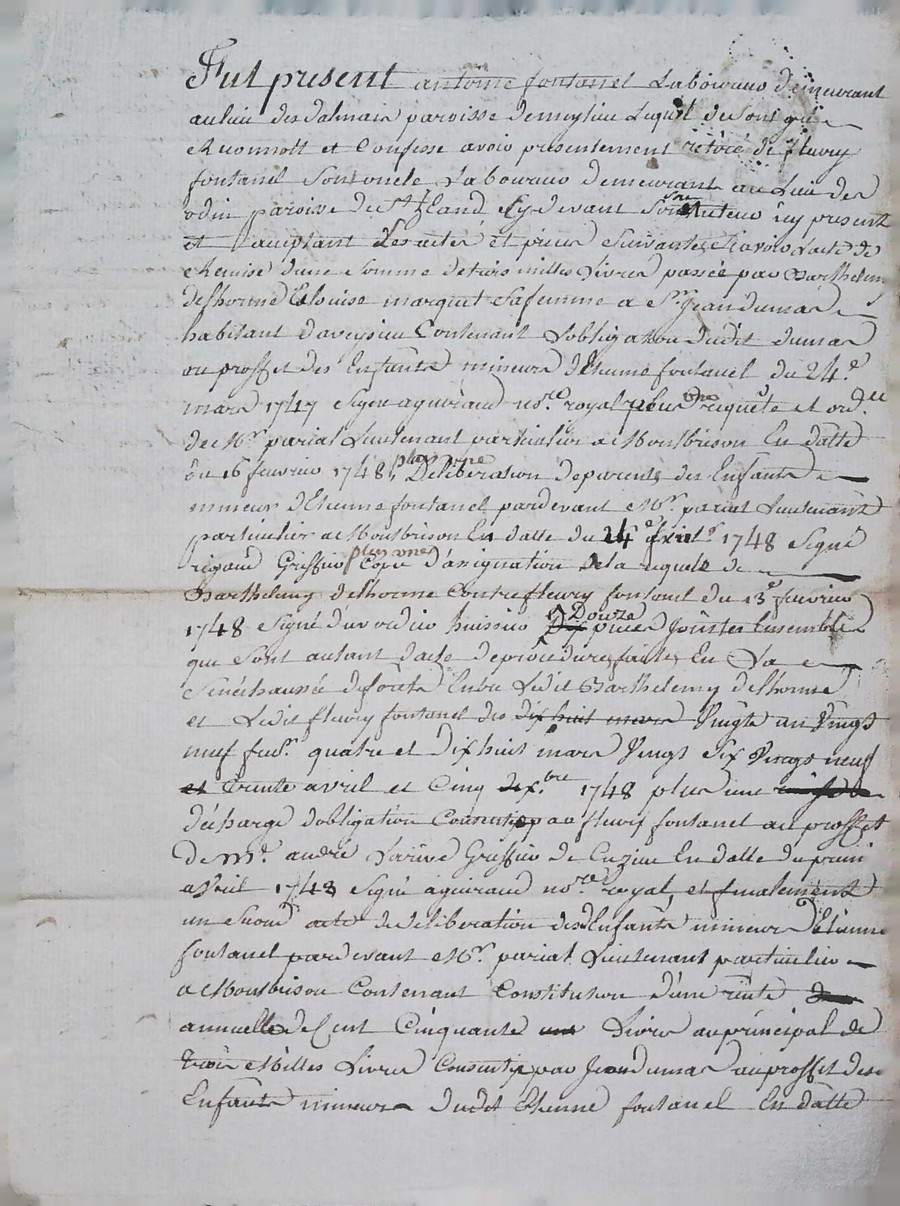 Fut present antoine fontanel Laboureur demeurant
au lieu des dalmais paroisse demeylieu Lequel de son gré
Reconnoît et Confesse avoir presentement retiré de fleury
fontanel Son oncle Laboureur demeurant au Lieu des
odin paroisse de St Gland Cy devant Son tuteur icy present
et acceptant Les actes et pieces Suivantes Sçavoir L'acte de
Remise d'une Somme de trois milles Livres passée par Barthelemy
delhorme Et Louise marquet Sa femme a Sr Jean dumas
habitant d'aveysieu Contenant L'obligation dudit dumas
au proffit des Enfants mineurs d'Etienne fontanel du 24e
mars 1747 Signé aguiraud nore royal plus une requête et ordce
de Mr pariat Lieutenant particulier a Montbrison En datte
du 16 fevrier 1748, plus une Deliberation de parents des Enfants
mineur d'Etienne fontanel pardevant Mr pariat Lieutenant
particulier a Montbrison En datte du 24e 1748 Signé
rigaud Greffier plus une Copie d'assignation de la requete de
Barthelemy delhorme Contre fleury fontanel du 13e fevrier
1748 Signé huissier Dix Douze pieces jointes Ensemble
qui Sont autant d'acte de procedure faites En La
Senéchaussée de forêts Entre Ledit Barthelemy delhorme
et Ledit fleury fontanel des dix huit mars Vingte un Vingt
neuf fevr quatre et dix huit mars Vingt Six Vingt neuf
et trente avril et Cinq bre 1748 plus une
décharge d'obligation Consentie par fleury fontanel au proffit
de Mr andré Larive Greffier de Cuzieu En datte du premr
avril 1748 Signé aguiraud nore royal, et finalement
un Second acte de deliberation des Enfants mineurs d'Etienne
fontanel pardevant Mr pariat Lieutenant particulier
a Montbrison Contenant Constitution d'une rente
annuelle de Cent Cinquante Livres au principal de
trois Milles Livres Consentie par Jean dumas au proffit des
Enfants mineurs dudit Etienne fontanel En datte